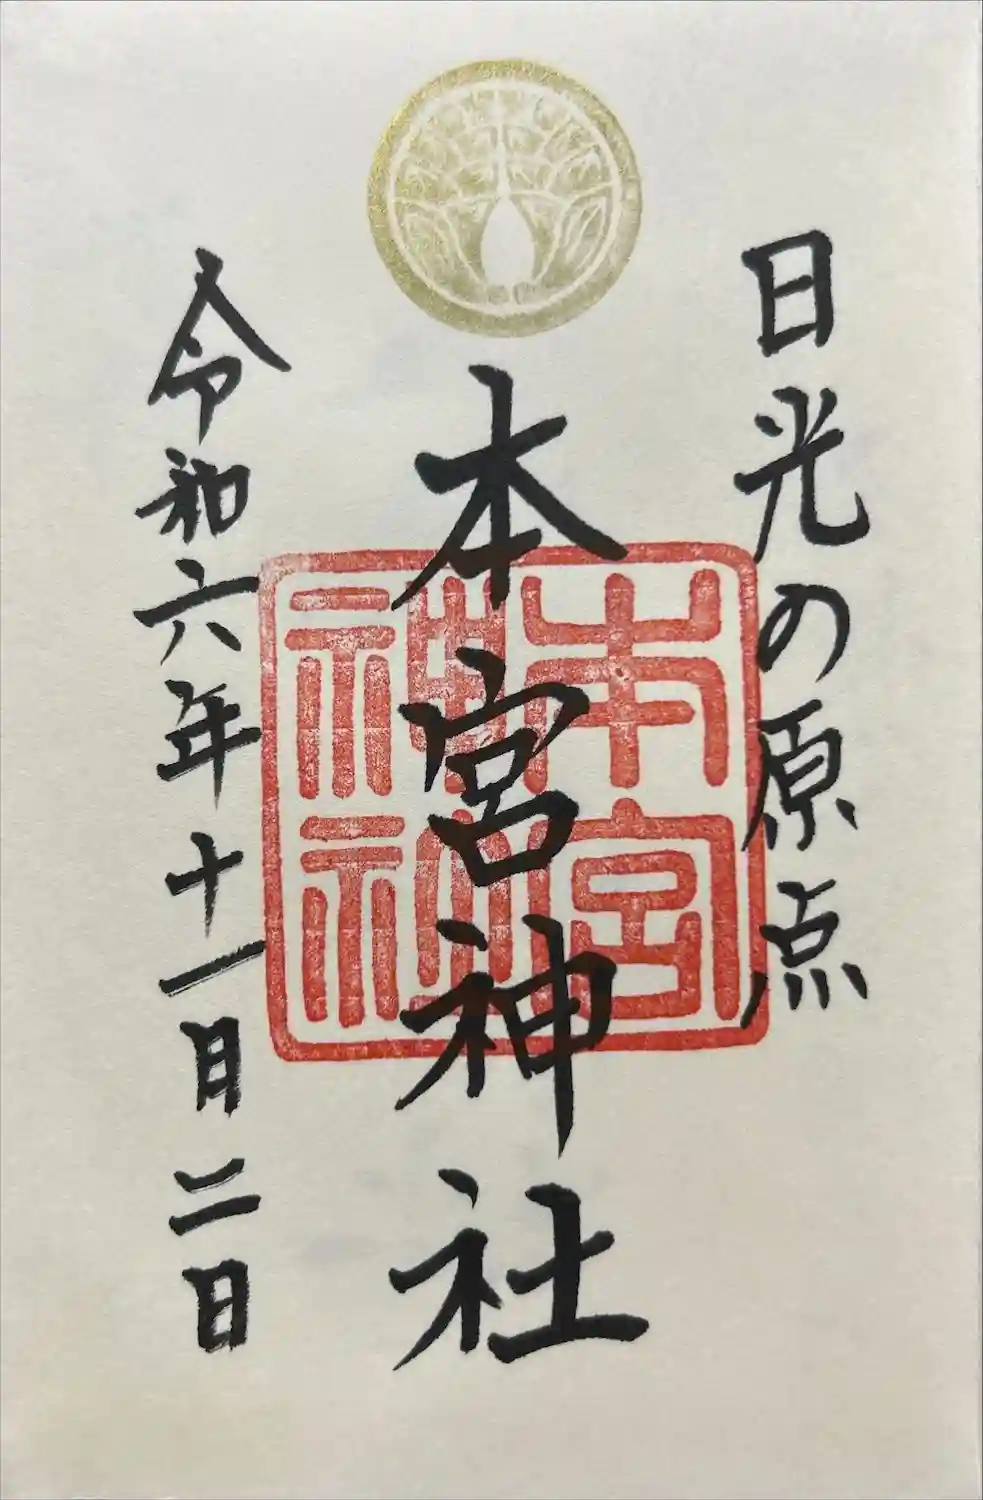 日光の原点
本宮神社
令和六年十一月二日
本宮
神社